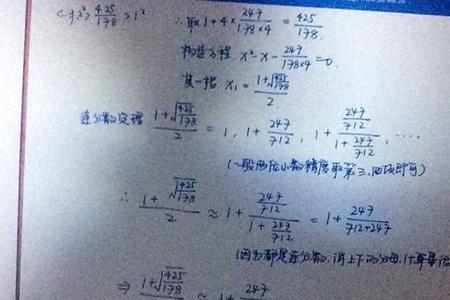 e.g. 2² > 425/178 > 1²
∴ 取 1+4×247/(178×4) = 425/178
构造方程 x²-x-247/(178×4)=0
其一根 x₁ = (1+√(425/178))/2
连分数定理 (1+√(425/178))/2 = 1, 1+247/712, 1+(247/712)/(1+247/712), ……
(一般两位小数精度取第三、四项即可)
∴ (1+√(425/178))/2 ≈ 1+(247/712)/(1+247/712) = 1+247/(712+247)
(因为都是连分数，消上下的分母，计算量
⇒ (1+√(425/178))/2 ≈ 1+247